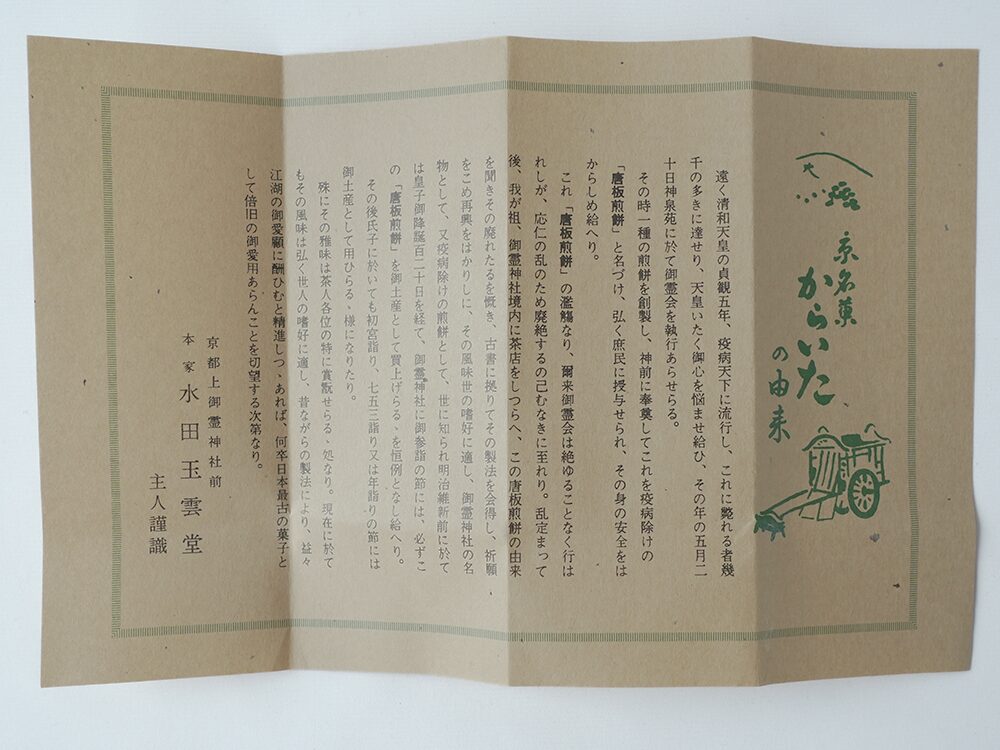 京名菓
からいた
の由来
遠く清和天皇の貞観五年、疫病天下に流行し、これに斃れる者幾
千の多きに達せり、天皇いたく御心を悩ませ給ひ、その年の五月二
十日神泉苑に於て御霊会を執行あらせらる。
その時一種の煎餅を創製し、神前に奉奠してこれを疫病除けの
「唐板煎餅」と名づけ、弘く庶民に授与せられ、その身の安全をは
からしめ給へり。
これ「唐板煎餅」の濫觴なり、爾来御霊会は絶ゆることなく行は
れしが、応仁の乱のため廃絶するの己むなきに至れり。乱定まって
後、我が祖、御霊神社境内に茶店をしつらへ、この唐板煎餅の由来
を聞きその廃れたるを慨き、古書に拠りてその製法を会得し、祈願
をこめ再興をはかりしに、その風味世の嗜好に適し、御霊神社の名
物として、又疫病除けの煎餅として、世に知られ明治維新前に於て
は皇子御降誕百二十日を経て、御霊神社に御参詣の節には、必ずこ
の「唐板煎餅」を御土産として買上げらるゝを恒例となし給へり。
その後氏子に於いても初宮詣り、七五三詣り又は年詣りの節には
御土産として用ひらるゝ様になりたり。
殊にその雅味は茶人各位の特に賞翫せらるゝ処なり。現在に於て
もその風味は弘く世人の嗜好に適し、昔ながらの製法により、益々
江湖の御愛顧に酬ひむと精進しつゝあれば、何卒日本最古の菓子と
して倍旧の御愛用あらんことを切望する次第なり。
京都上御霊神社前
本家 水田玉雲堂
主人謹識